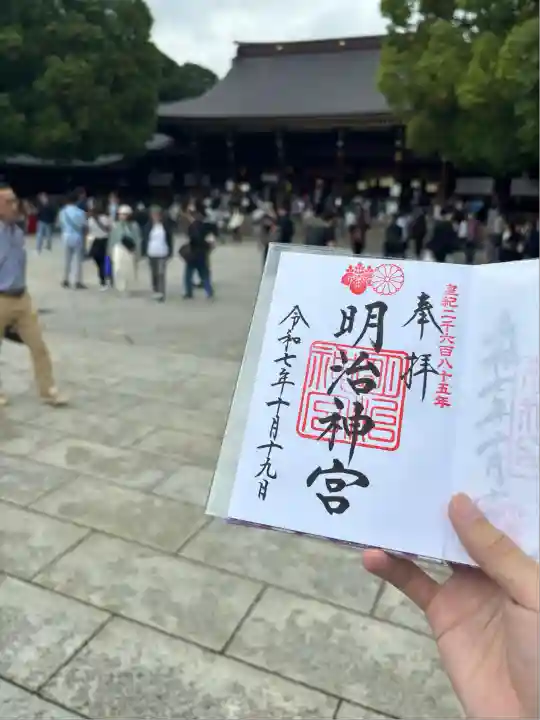 皇紀二千六百八十五年
奉拝
明治神宮
令和七年十月十九日